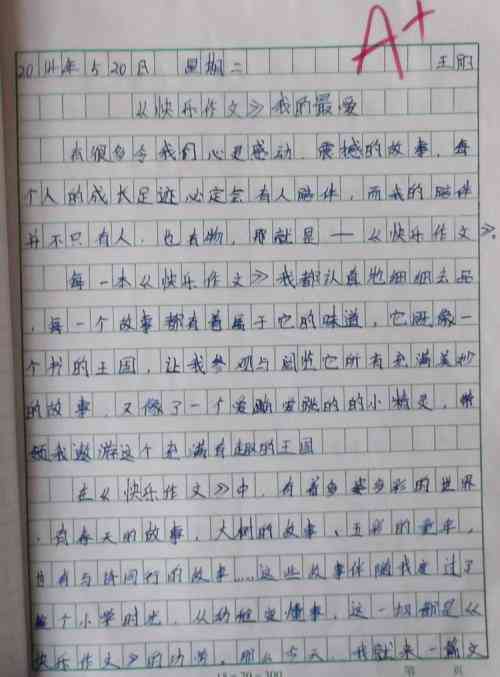 A+
2014年5月20日 星期二 王丽
《快乐作文》我的最爱
有很多令我们心灵感动、震撼的故事,每
个人的成长足迹必定会有人陪伴,而我的陪伴
并不只有人,也有物,那就是——《快乐作文》。
每一本《快乐作文》我都认真地细细去品
,每一个故事都有着属于它的味道,它既像一
个书的王国,让我参观与阅览它所有充满美妙
的故事,又像了一个爱蹦爱跳的的小精灵,带
领我遨游这个充满有趣的王国
在《快乐作文》中,有着多姿多彩的世界
,有春天的故事,大树的故事、五彩的童年,
也有与诗同行的故事……这些故事伴随我度过了
整个小学时光,从幼稚变懂事,这一切都是《
快乐作文》的功劳,那么今天,我就来一篇文
15×20=300 第 页